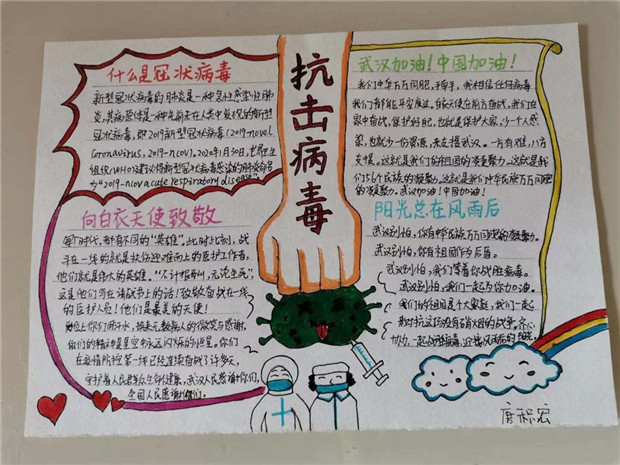 什么是冠状病毒
新型冠状病毒的肺炎是一种急性感染性肺
炎,其病原体是一种先前未在人类中发现的新型
冠状病毒,即2019新型冠状病毒(2019-novel
Coronavirus,2019-ncov).2020年1月30日,世界卫生
组织(WHO)建议将新型冠状病毒感染的肺炎命名
为“2019-ncov acute respiratory disease”
向白衣天使致敬
每个时代,都有不同的“英雄”。此时此刻,战
斗在一线的就是救伤迎难而上的医护工作者,
他们就是伟大的英雄。“不计报酬,无论生死”
这是他们写在请战书上的话!致敬奋战在一线
的医护人员!他们是最美的天使!
你们的精神是星空永远闪烁的恒星。你们
在疫情防控第一线已经连续奋战了许多天,
守护着人民群众生命健康,武汉人民感谢你们,
全国人民感谢你们。
抗击病毒
武汉加油!中国加油!
我们中华万万同胞,携手,我相信任何病毒
我们都能平安度过,有医护天使在前方奋战,我们在
家中奋战,保护好自己,也就是保护大家,少一个人感
染,也就少一份资源,来支援武汉。一方有难,八方
支援,这就是我们的祖国的凝聚力。这就是我
们56个民族的凝聚力,这就是我们中华民族万万同胞
的凝聚力。武汉加油!中国加油!
阳光总在风雨后
武汉别怕,你有中华民族万万同胞的凝聚力。
武汉别怕,你有祖国作为后盾。
武汉别怕,我们等着你战胜病毒。
武汉别怕,我们一起为你加油。
我们的祖国是个大家庭,我们一起
面对抗这场没有硝烟的战争。齐心
协力,一起战胜病毒,迎接风雨后的阳光。